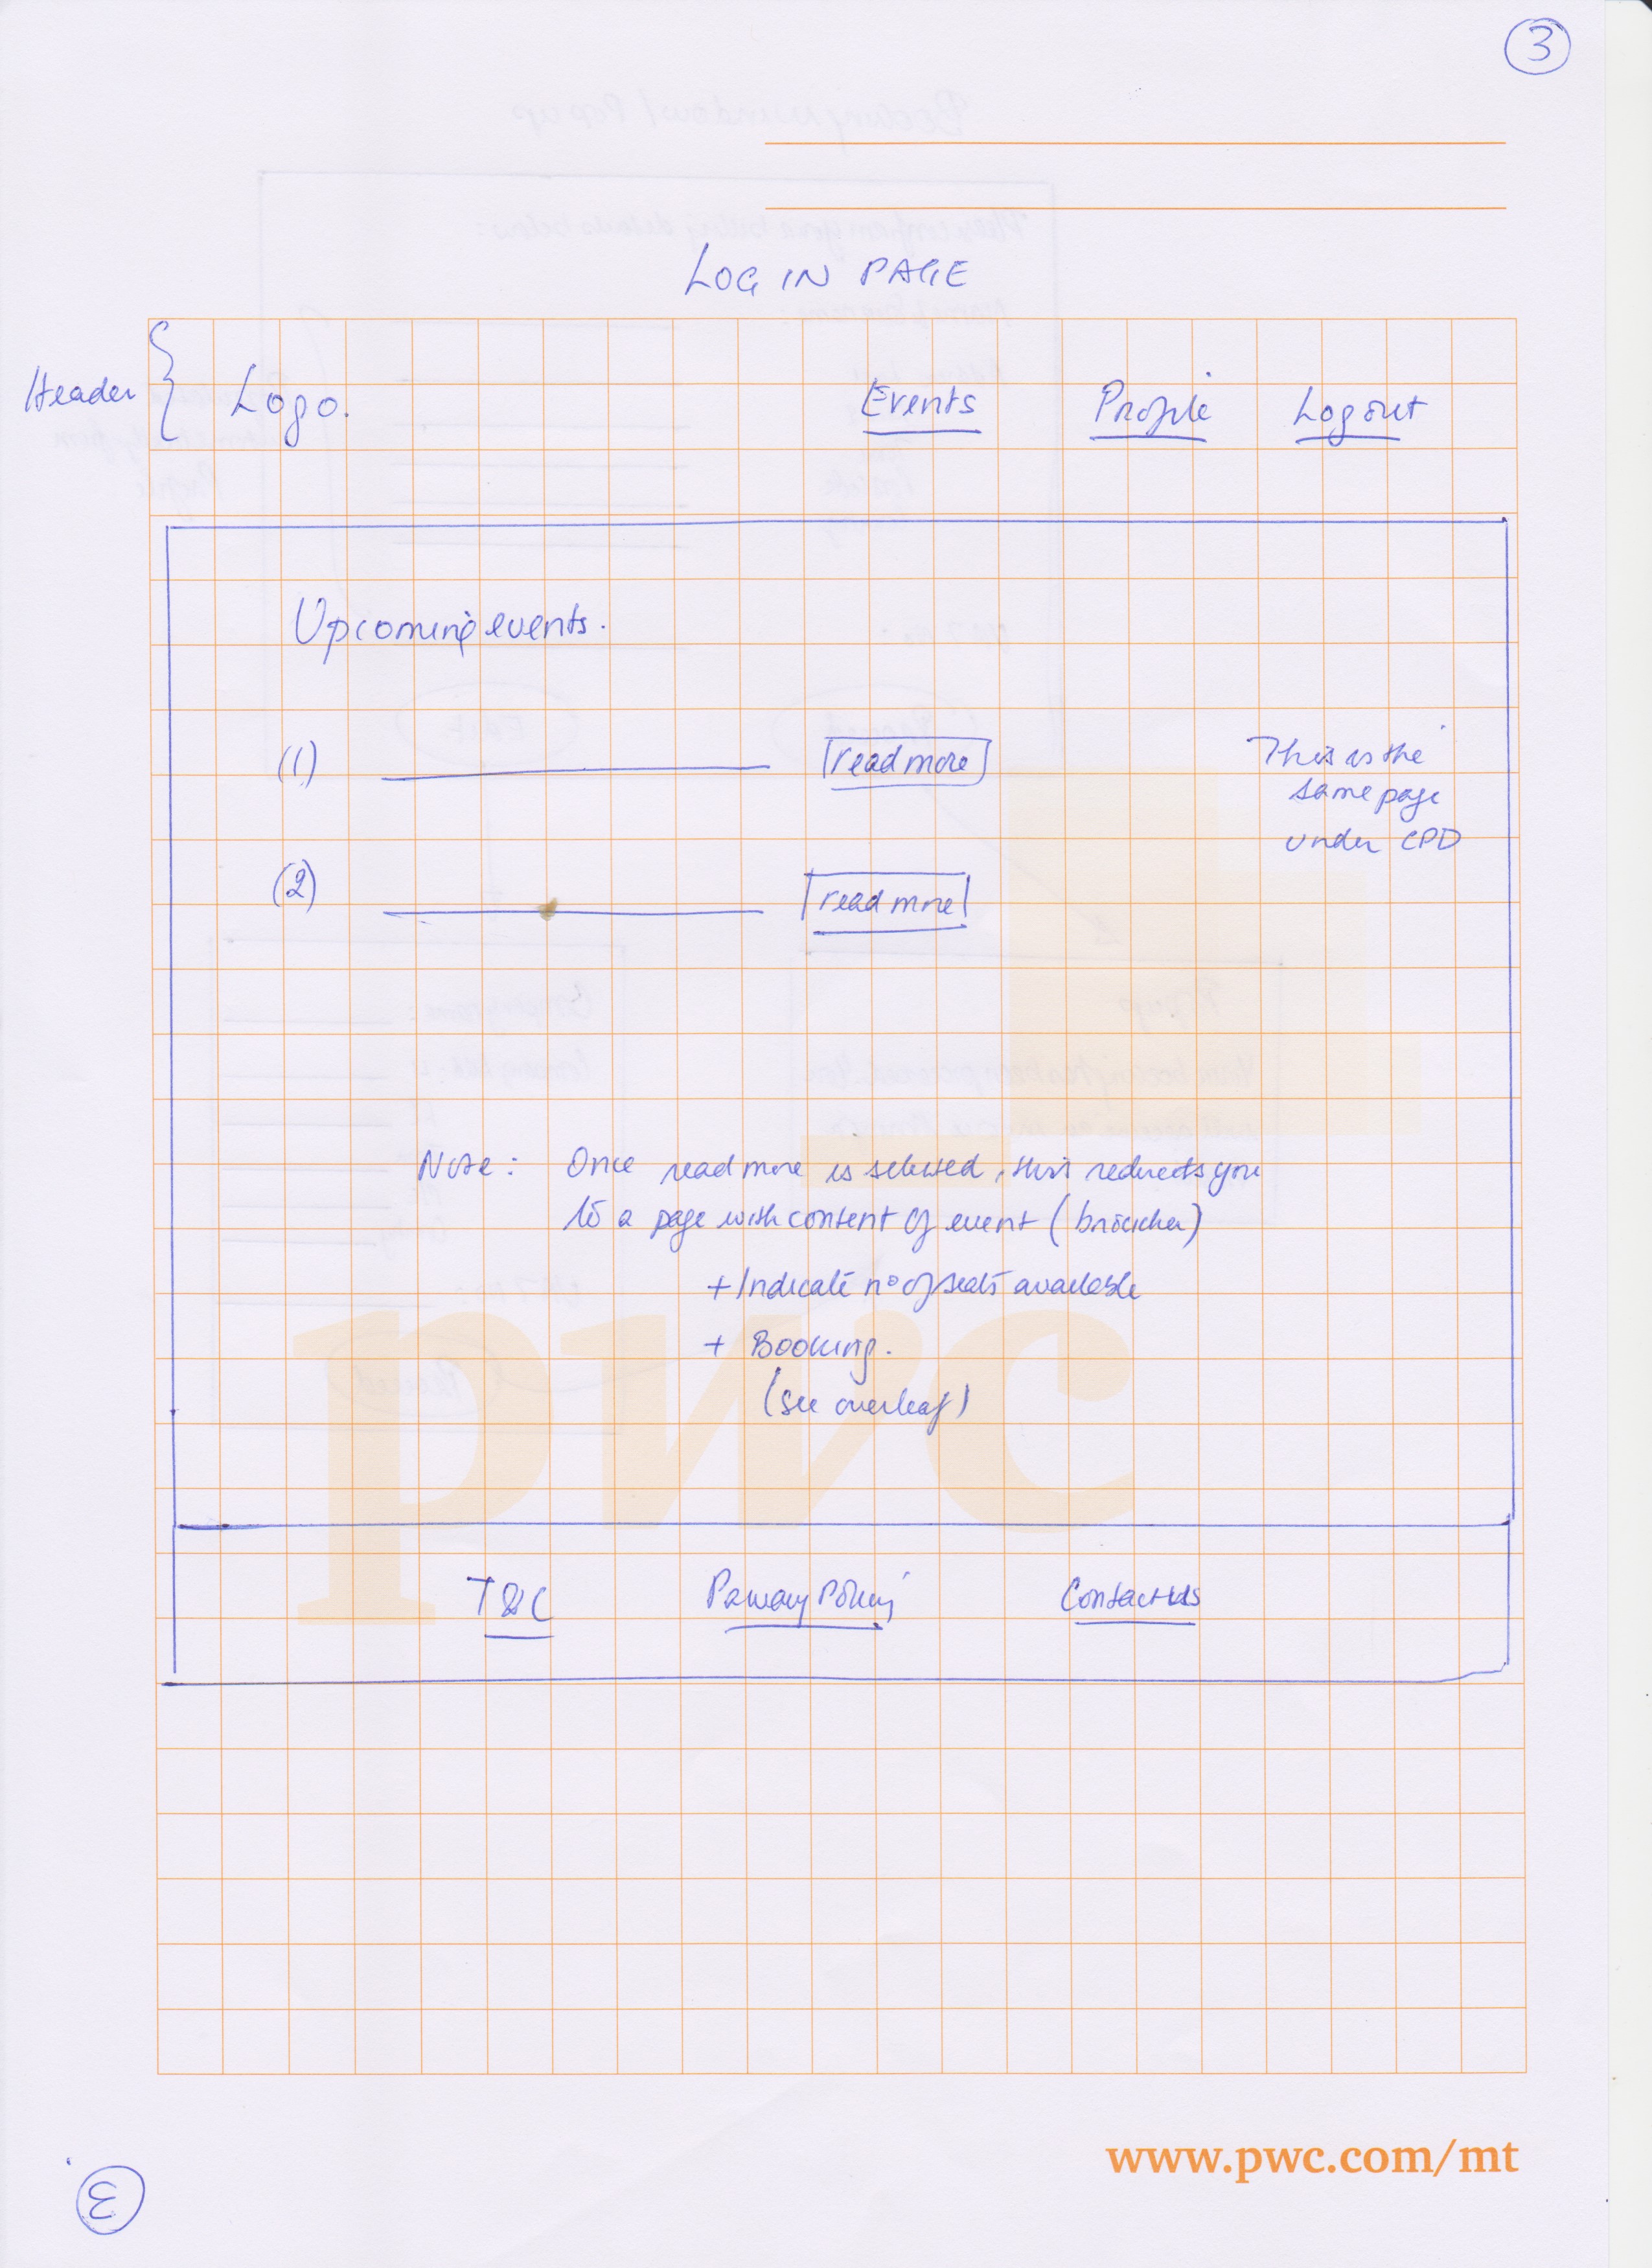 3
LOG IN PAGE
Header
Logo.
Events Profile Logout
Upcoming events.
(1) read more
This is the
same page
under CPD
(2) read more
Note: Once read more is selected, this redirects you
to a page with content of event (broucher)
+ Indicate nº of seats available
+ Booking.
(see overleaf)
pwc
T&C Privacy Policy Contact us
www.pwc.com/mt
3